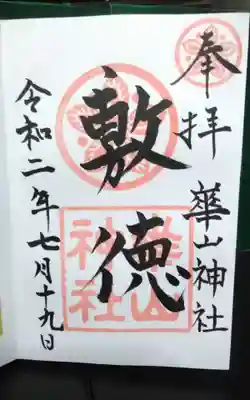 奉拝
華山神社
敷徳
令和二年七月十九日
華山神社